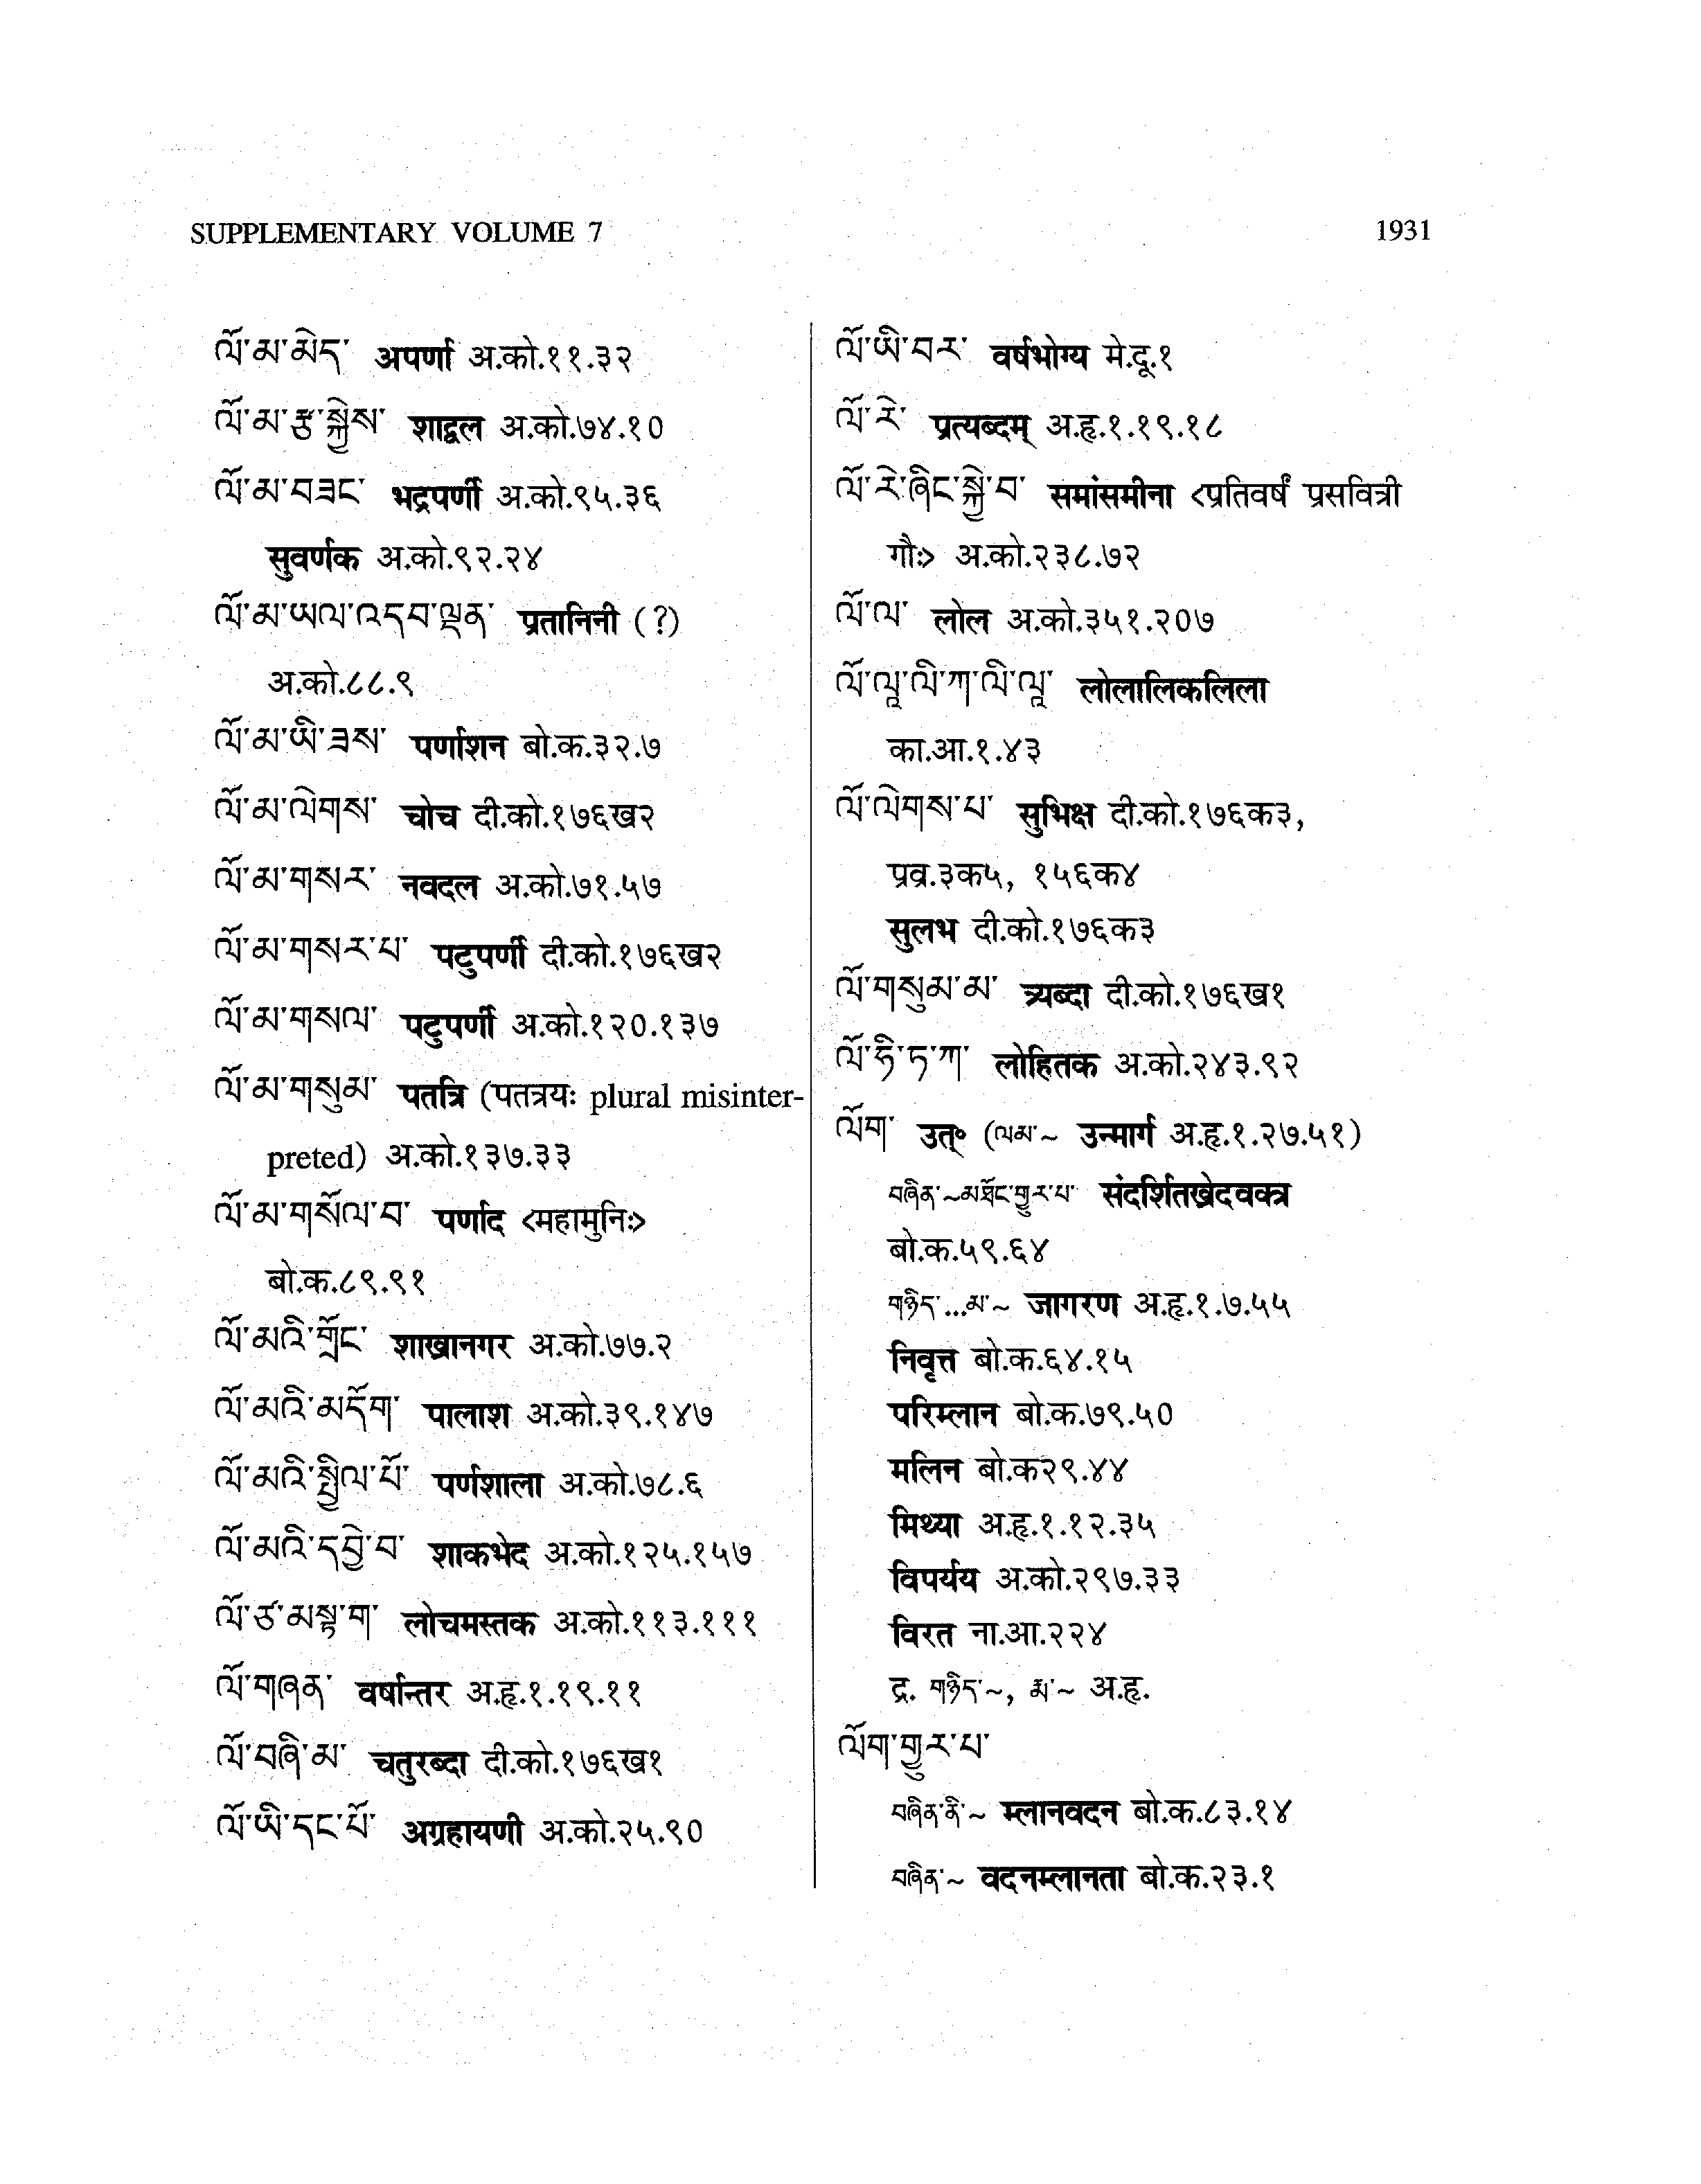 SUPPLEMENTARY VOLUME 7 1931
ལོ་མ་མེད་ अपर्णा अ.को.११.३२
ལོ་མ་རྩ་སྐྱེས་ शाद्वल अ.को.७४.१०
ལོ་མ་བཟང་ भद्रपर्णी अ.को.९५.३६
सुवर्णक अ.को.९२.२४
ལོ་མ་ཡལ་འདབ་ལྡན་ प्रतानिनी (?)
अ.को.८८.९
ལོ་མ་ཡི་ཟས་ पर्णाशन बो.क.३२.७
ལོ་མ་ལེགས་ चोच दी.को.१७६ख२
ལོ་མ་གསར་ नवदल अ.को.७१.५७
ལོ་མ་གསར་པ་ पटुपर्णी दी.को.१७६ख२
ལོ་མ་གསལ་ पटुपर्णी अ.को.१२०.१३७
ལོ་མ་གསུམ་ पतत्रि (पतत्रयः plural misinter-
preted) अ.को.१३७.३३
ལོ་མ་གསོལ་བ་ पर्णाद <महामुनिः>
बो.क.८९.९१
ལོ་མའི་གྲོང་ शाखानगर अ.को.७७.२
ལོ་མའི་མདོག་ पालाश अ.को.३९.१४७
ལོ་མའི་སྤྱིལ་པོ་ पर्णशाला अ.को.७८.६
ལོ་མའི་དབྱེ་བ་ शाकभेद अ.को.१२५.१५७
ལོ་ཙ་མསྟ་ག་ लोचमस्तक अ.को.११३.१११
ལོ་གཞན་ वर्षान्तर अ.हृ.१.१९.११
ལོ་བཞི་མ་ चतुरब्दा दी.को.१७६ख१
ལོ་ཡི་དང་པོ་ अग्रहायणी अ.को.२५.९०
ལོ་ཡི་བར་ वर्षभोग्य मे.दू.१
ལོ་རེ་ प्रत्यब्दम् अ.हृ.१.१९.१८
ལོ་རེ་ཞིང་སྐྱེ་བ་ समांसमीना <प्रतिवर्षं प्रसवित्री
गौः> अ.को.२३८.७२
ལོ་ལ་ लोल अ.को.३५१.२०७
ལོ་ལཱ་ལི་ཀ་ལི་ལཱ་ लोलालिकलिला
का.आ.१.४३
ལོ་ལེགས་པ་ सुभिक्ष दी.को.१७६क३,
प्रव्र.३क५, १५६क४
सुलभ दी.को.१७६क३
ལོ་གསུམ་མ་ त्र्यब्दा दी.को.१७६ख१
ལོ་ཧི་ཏ་ཀ་ लोहितक अ.को.२४३.९२
ལོག་ उत्॰ (ལམ་~ उन्मार्ग अ.हृ.१.२७.५१)
བཞིན་~མཐོང་གྱུར་པ་ संदर्शितखेदवक्त्र
बो.क.५९.६४
གཉིད་...མ་~ जागरण अ.हृ.१.७.५५
निवृत्त बो.क.६४.१५
परिम्लान बो.क.७९.५०
मलिन बो.क२९.४४
मिथ्या अ.हृ.१.१२.३५
विपर्यय अ.को.२९७.३३
विरत ना.आ.२२४
द्र. གཉིད་~, མ་~ अ.हृ.
ལོག་གྱུར་པ་
བཞིན་ནི་~ म्लानवदन बो.क.८३.१४
བཞིན་~ वदनम्लानता बो.क.२३.१